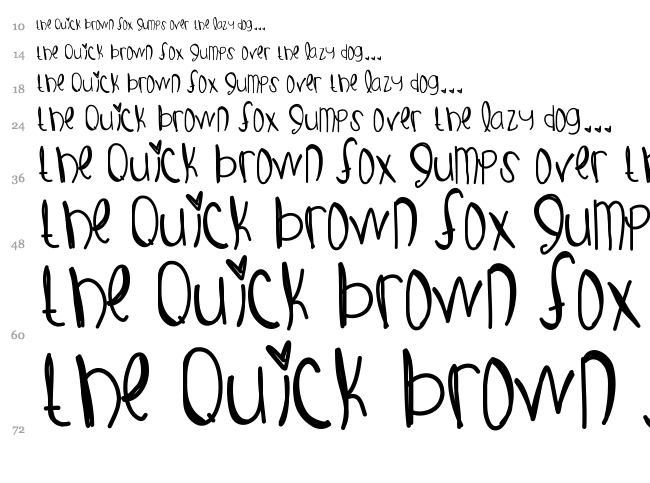 10 the Quick brown fox gumps over the lazy dog...
14 the Quick brown fox gumps over the lazy dog...
18 the Quick brown fox gumps over the lazy dog...
24 the Quick brown fox gumps over the lazy dog...
36 the Quick brown fox gumps over th
48 the Quick brown fox gump
60 the Quick brown fox
72 the Quick brown